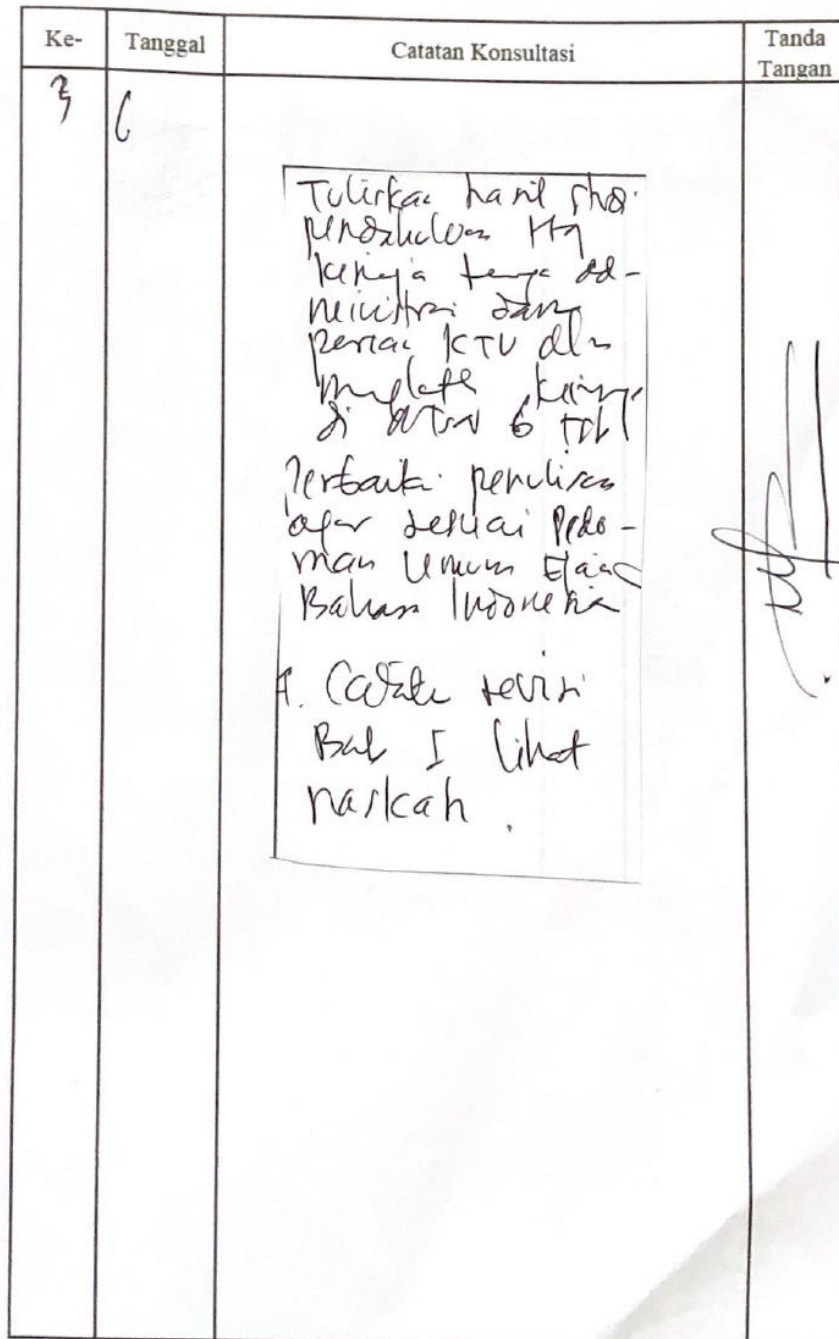 Ke- Tanggal Catatan Konsultasi Tanda Tangan
3
Tuliskan hasil studi
pendahuluan ttg
kinerja tenaga ad-
ministrasi dan
peran KTU dlm
kinerja
di 6
Perbaiki penulisan
agar sesuai Pedo-
man Umum Ejaan
Bahasa Indonesia
Catatan revisi
Bab I lihat
naskah.